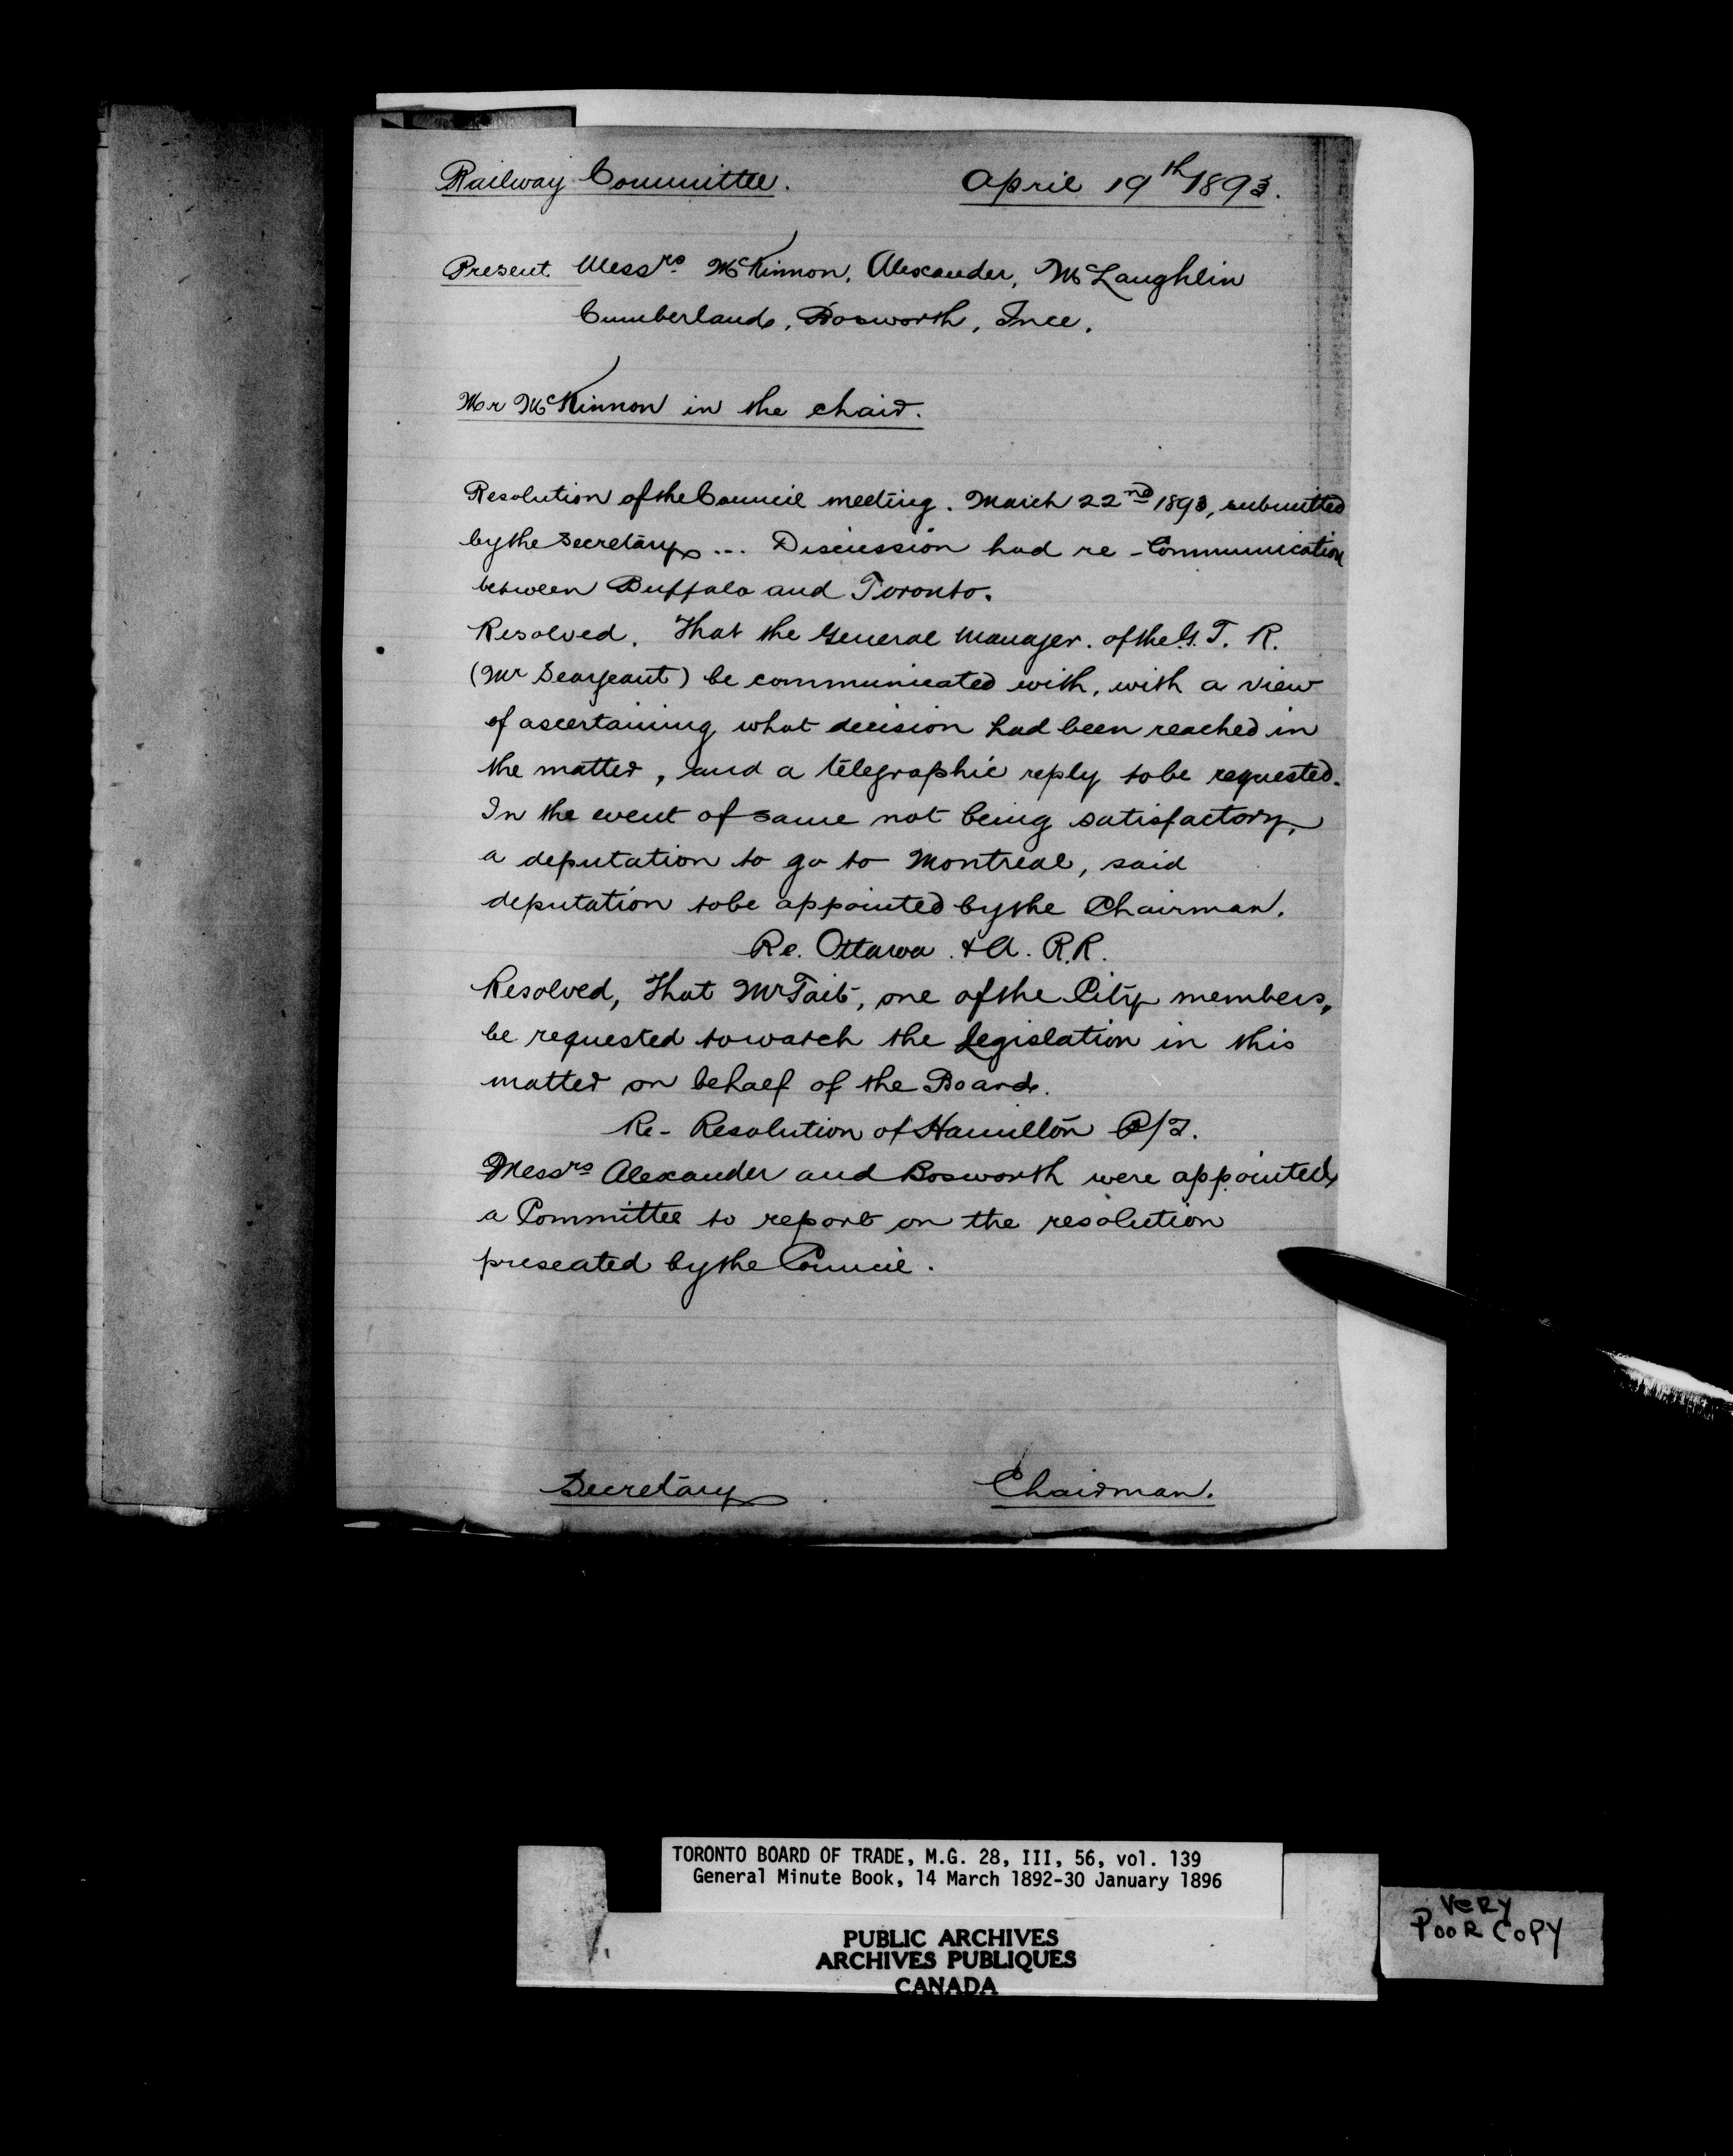 Railway Committee. April 19th 1893.
Present. Messrs. McKinnon, Alexander, McLaughlin
Cumberland, Bosworth, Ince.
Mr McKinnon in the chair.
Resolution of the Council meeting. March 22nd 1893, submitted
by the Secretary ... Discussion had re - Communication
between Buffalo and Toronto.
Resolved. That the General Manager. of the G. T. R.
(Mr Seargeant) be communicated with, with a view
of ascertaining what decision had been reached in
the matter, and a telegraphic reply to be requested.
In the event of same not being satisfactory,
a deputation to go to Montreal, said
deputation to be appointed by the Chairman.
Re. Ottawa. & A. R.R.
Resolved, That Mr Tait, one of the City members,
be requested to watch the legislation in this
matter on behalf of the Board.
Re - Resolution of Hamilton B/T.
Messrs Alexander and Bosworth were appointed
a Committee to report on the resolution
presented by the Council.
Secretary Chairman.
TORONTO BOARD OF TRADE, M.G. 28, III, 56, vol. 139
General Minute Book, 14 March 1892-30 January 1896
PUBLIC ARCHIVES
ARCHIVES PUBLIQUES
CANADA
VERY
POOR COPY